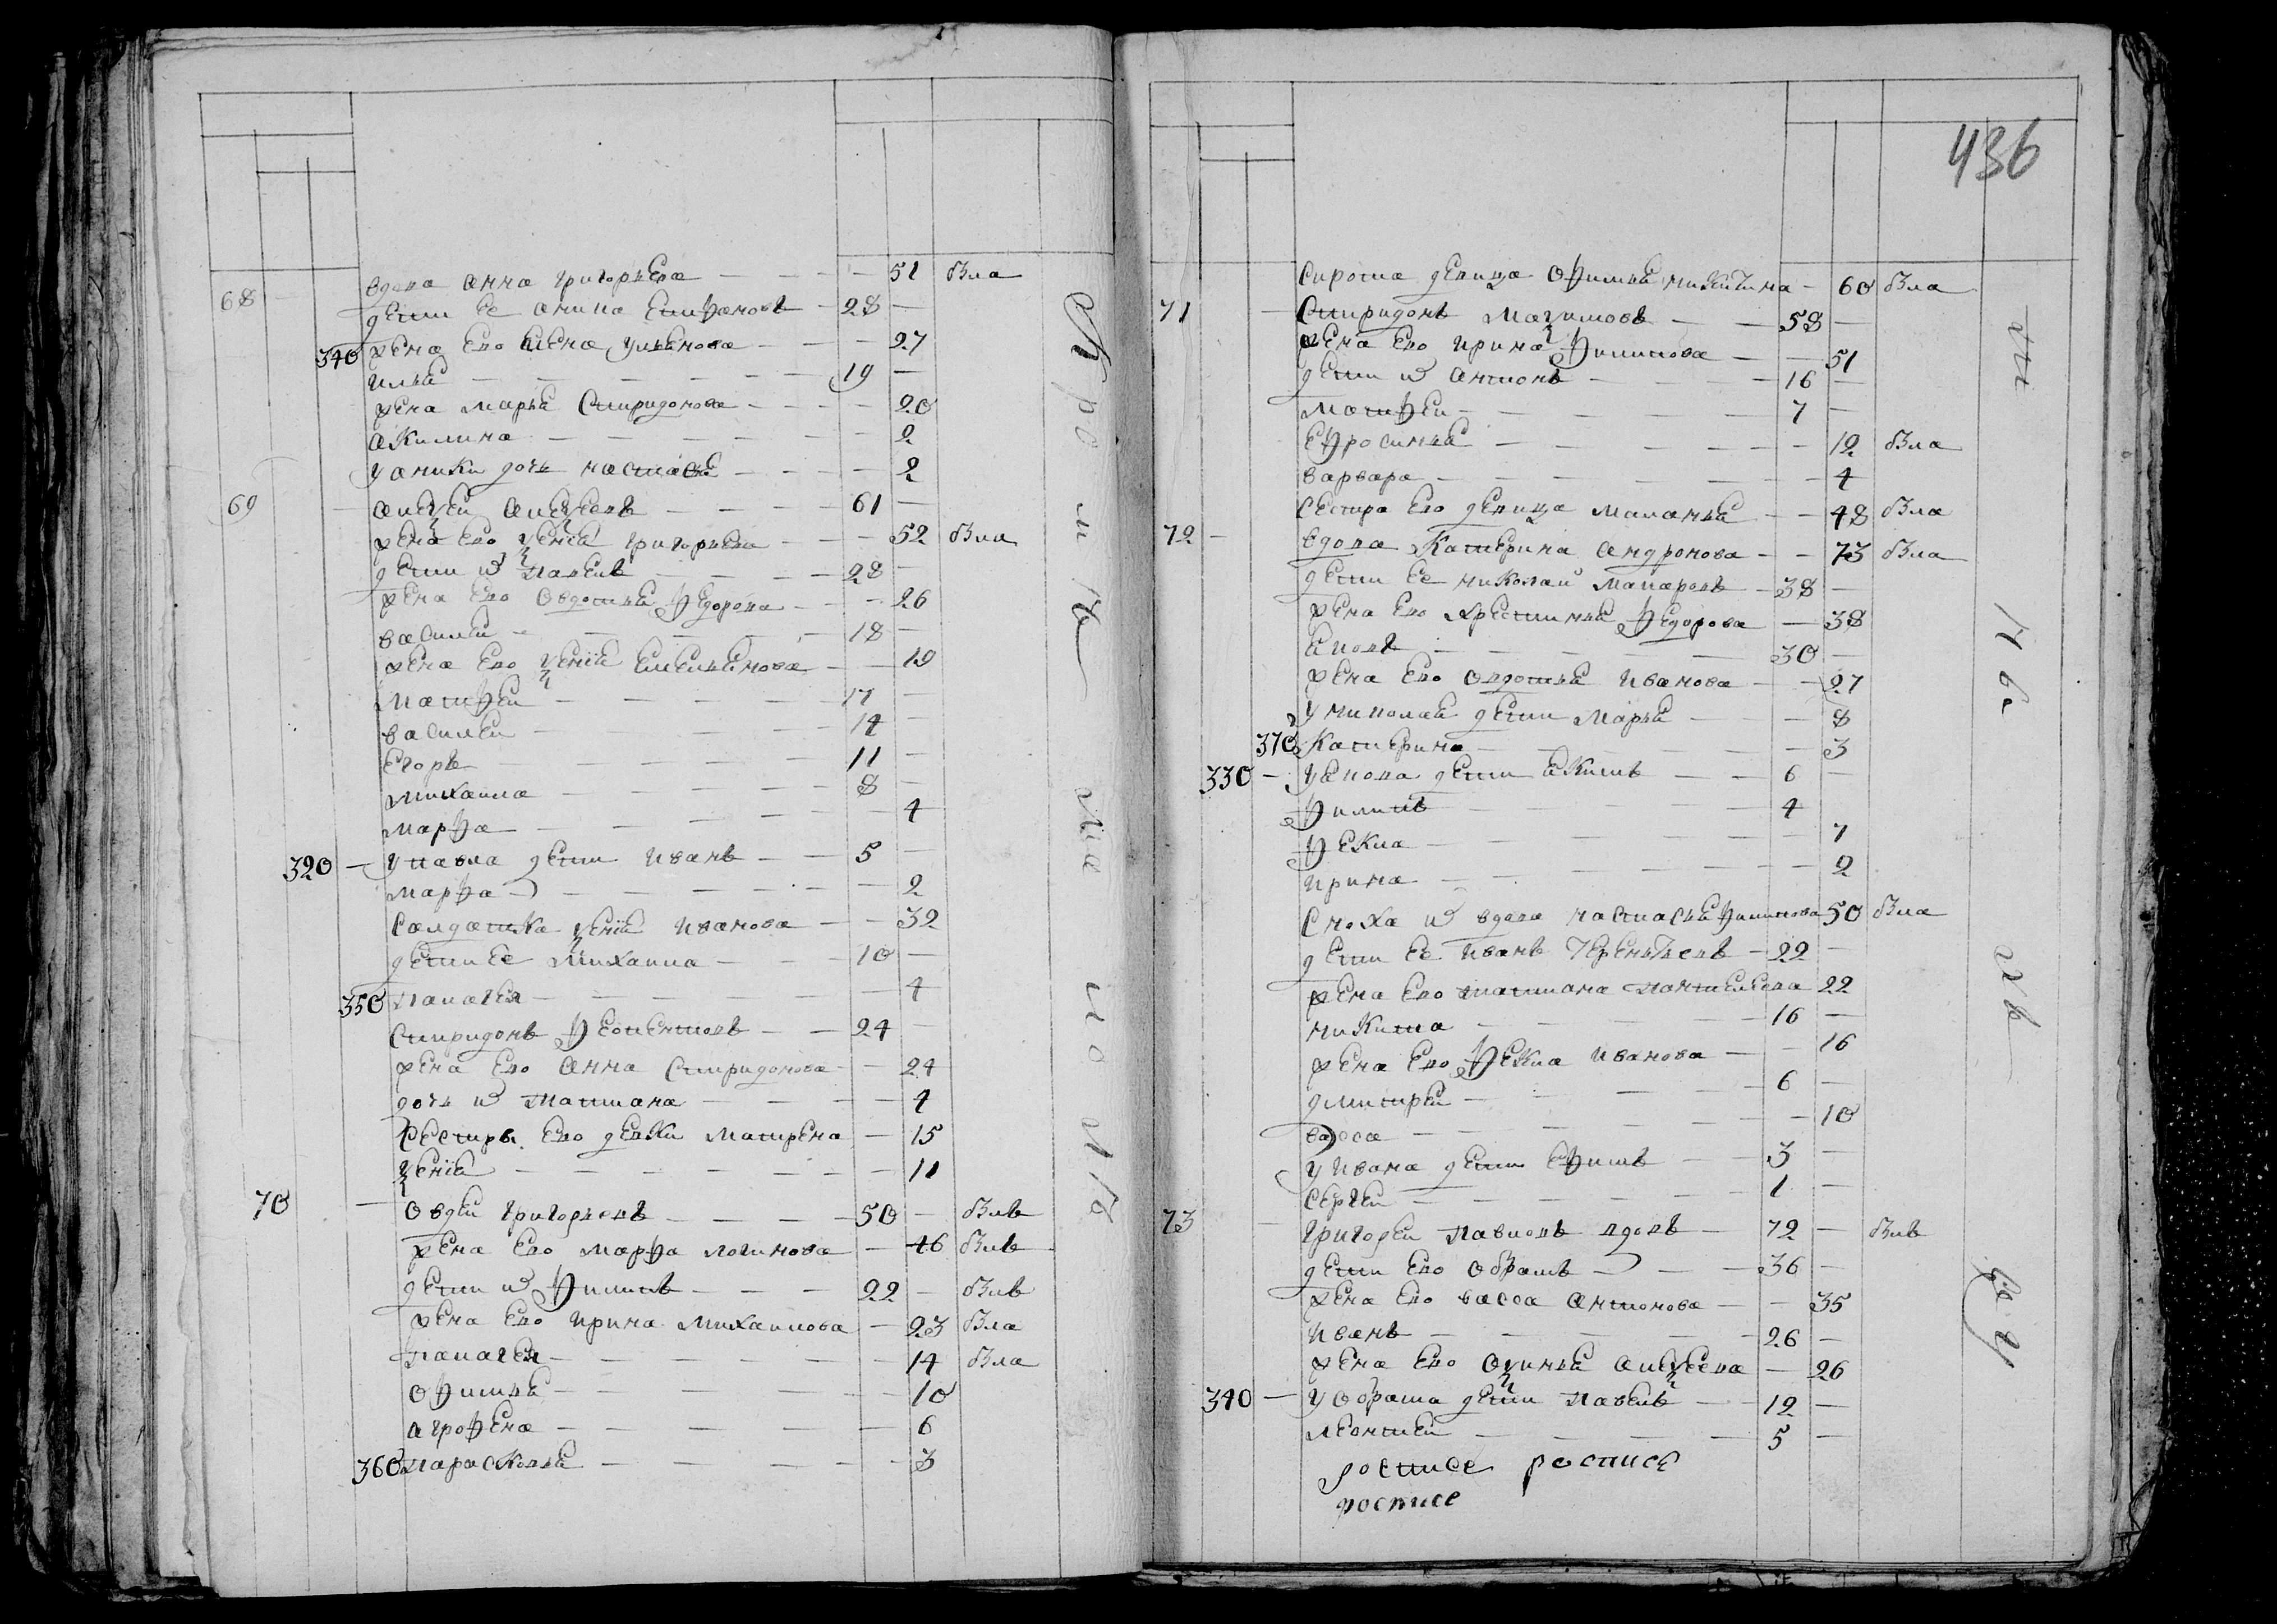 вдова анна григорьева — 51 Бла
68 дети ее аника епифановъ — 28
340 жена ево елена ульянова — 27
илья — 19
жена марья спиридонова — 20
акилина — 2
у аники дочь настасья — 2
69 алексеи алексеевъ — 61
жена ево ксенія григорьева — 52 Бла
дети их павелъ — 28
жена ево овдотья федорова — 26
василеи — 18
жена ево ксенія емельянова — 19
матфеи — 17
василеи — 14
егоръ — 11
михаила — 8
марфа — 4
320 у павла дети иванъ — 5
марфа — 2
салдатка ксенія иванова — 32
дети ее михаила — 10
350 палагея — 4
спиридонъ — 24
жена ево анна спиридонова — 24
дочь их татиана — 4
сестры ево девки матрена — 15
ксенія — 11
70 овдеи григорьевъ — 50 — Блъ
жена ево марфа логинова — 46 Блъ
дети их филипъ — 22 — Блъ
жена ево ирина михаилова — 23 Бла
палагея — 14 Бла
офимья — 10
агрофена — 6
360 парасковья — 3
436
сирота девица офимья никитина — 60 Бла
71 спиридонъ — 58
жена ево ирина филипова — 51
дети их антонъ — 16
матфеи — 7
ефросинья — 12 Бла
варвара — 4
сестра ево девица маланья — 48 Бла
72 вдова катерина андронова — 73 Бла
дети ее николаи макаровъ — 38
жена ево хрестинья федорова — 38
яковъ — 30
жена ево овдотья иванова — 27
у николая дети марья — 8
370 катерина — 3
330 у якова дети якимъ — 6
филипъ — 4
фекла — 7
ирина — 2
сноха их вдова настасья филипова 50 Бла
дети ее иванъ терентьевъ — 22
жена ево татиана пантелеева 22
никита — 16
жена ево фекла иванова — 16
дмитреи — 6
васса — 10
у ивана дети ефимъ — 3
сергеи — 1
73 григореи павловъ вдовъ — 72 — Блъ
дети ево — 36
жена ево васса антонова — 35
иванъ — 26
жена ево аксинья алексеева — 26
340 дети павелъ — 12
леонтеи — 5
росписе роспись
росписе